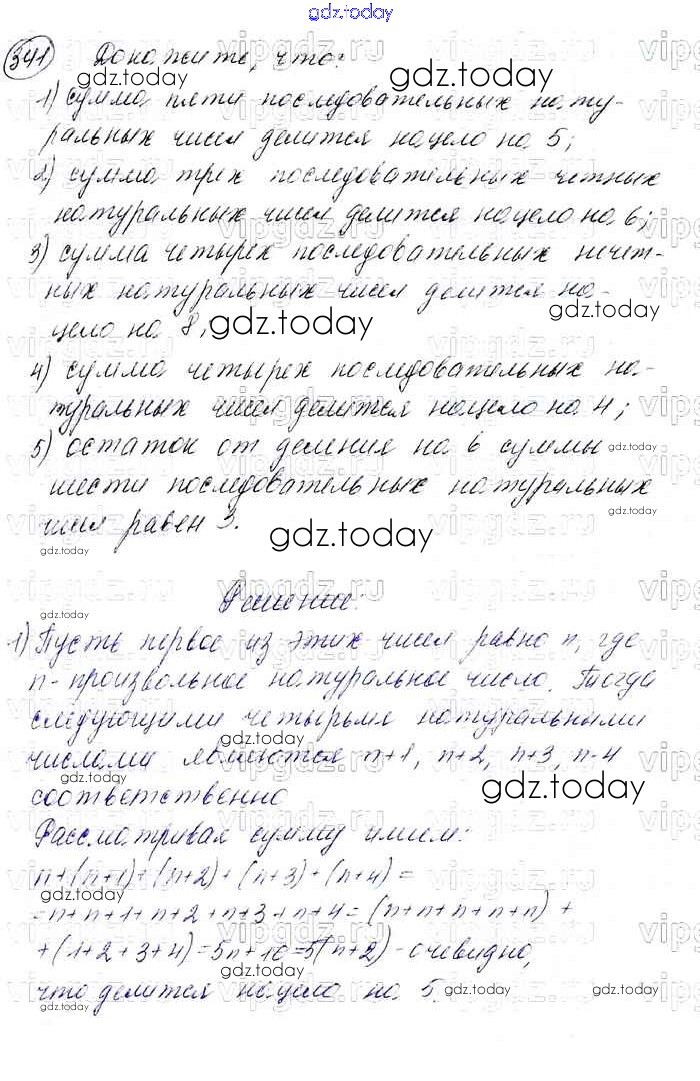 gdz.today
341 Докажите, что:
gdz.today
1) сумма пяти последовательных нату-
ральных чисел делится нацело на 5;
2) сумма трех последовательных четных
натуральных чисел делится нацело на 6;
3) сумма четырех последовательных нечет-
ных натуральных чисел делится на-
gdz.today
цело на 8;
gdz.today
4) сумма четырех последовательных на-
туральных чисел делится нацело на 4;
5) остаток от деления на 6 суммы
gdz.today
шести последовательных натуральных
чисел равен 3.
gdz.today
gdz.today
Решение:
gdz.today
1) Пусть первое из этих чисел равно n, где
n - произвольное натуральное число. Тогда
следующими четырьмя натуральными
gdz.today
числами являются n+1, n+2, n+3, n-4
gdz.today
gdz.today
соответственно
Рассматривая сумму имеем:
n+(n+1)+(n+2)+(n+3)+(n+4)=
=n+n+1+n+2+n+3+n+4=(n+n+n+n+n)+
+(1+2+3+4)=5n+10=5(n+2) - очевидно,
gdz.today
что делится нацело на 5.
gdz.today
gdz.today